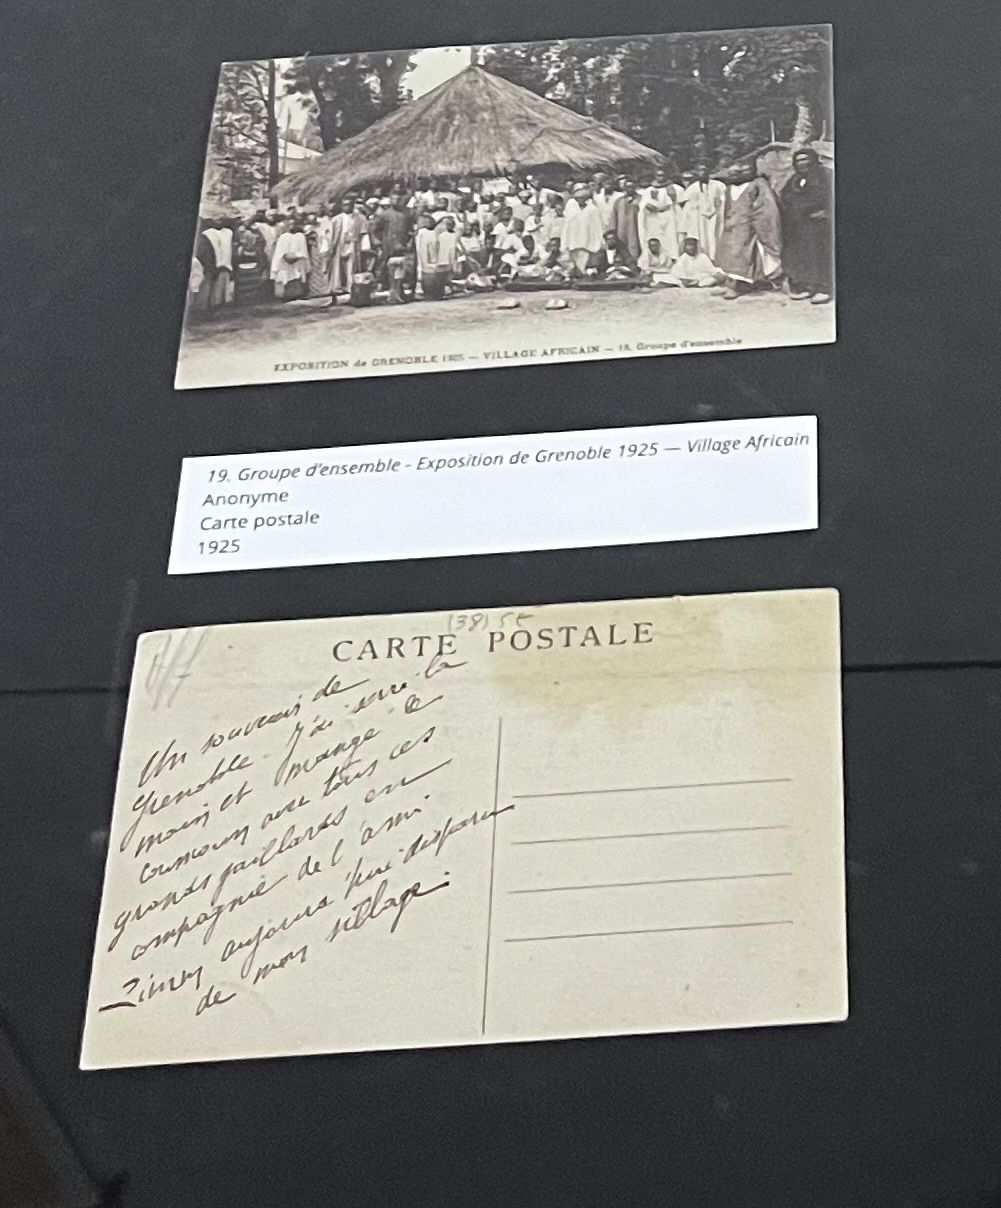 EXPOSITION de GRENOBLE 1925 — VILLAGE AFRICAIN — 19. Groupe d'ensemble
19. Groupe d'ensemble - Exposition de Grenoble 1925 — Village Africain
Anonyme
Carte postale
1925
(38) 5€
CARTE POSTALE
Un souvenir de
Grenoble. J'ai serré la
main et mangé le
couscous avec tous ces
grands gaillards en
compagnie de l'ami
aujourd'hui disparu
de mon village.